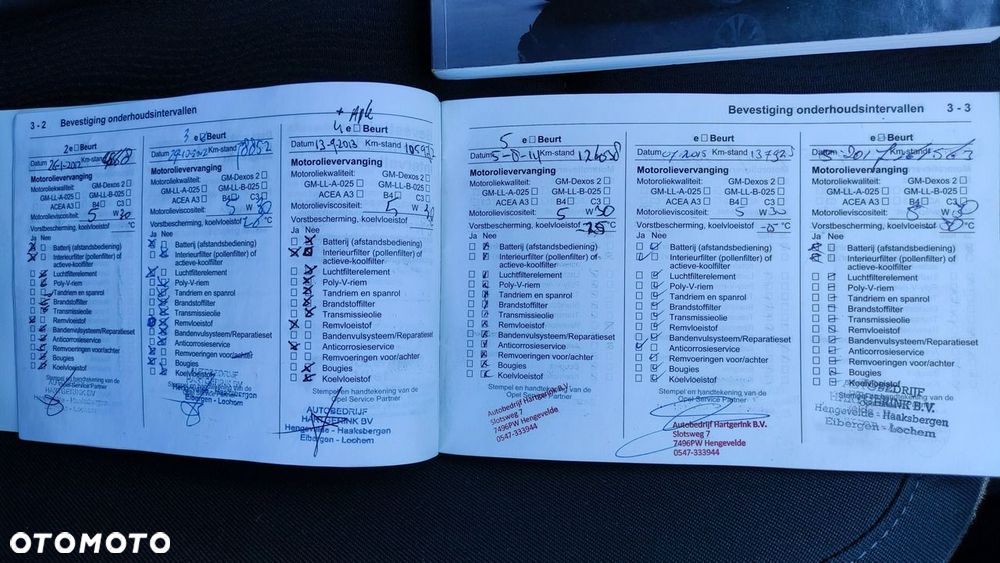 3 - 2 Bevestiging onderhoudsintervallen
2 e Beurt
Datum 26-1-2012 Km-stand
Motorolievervanging
Motoroliekwaliteit: GM-Dexos 2
GM-LL-A-025 GM-LL-B-025
ACEA A3 B4 C3
Motorolieviscositeit: 5 W 30
Vorstbescherming, koelvloeistof °C
Ja Nee
Batterij (afstandsbediening)
Interieurfilter (pollenfilter) of
actieve-koolfilter
Luchtfilterelement
Poly-V-riem
Tandriem en spanrol
Brandstoffilter
Transmissieolie
Remvloeistof
Bandenvulsysteem/Reparatieset
Anticorrosieservice
Remvoeringen voor/achter
Bougies
Koelvloeistof
Stempel en handtekening van de
Opel Service Partner
3 e Beurt
Datum Km-stand
Motorolievervanging
Motoroliekwaliteit: GM-Dexos 2
GM-LL-A-025 GM-LL-B-025
ACEA A3 B4 C3
Motorolieviscositeit: 5 W 30
Vorstbescherming, koelvloeistof °C
Ja Nee
Batterij (afstandsbediening)
Interieurfilter (pollenfilter) of
actieve-koolfilter
Luchtfilterelement
Poly-V-riem
Tandriem en spanrol
Brandstoffilter
Transmissieolie
Remvloeistof
Bandenvulsysteem/Reparatieset
Anticorrosieservice
Remvoeringen voor/achter
Bougies
Koelvloeistof
Eibergen - Lochem
+ Apk
4 e Beurt
Datum 13-9-2013 Km-stand
Motorolievervanging
Motoroliekwaliteit: GM-Dexos 2
GM-LL-A-025 GM-LL-B-025
ACEA A3 B4 C3
Motorolieviscositeit: 5 W 30
Vorstbescherming, koelvloeistof °C
Ja Nee
Batterij (afstandsbediening)
Interieurfilter (pollenfilter) of
actieve-koolfilter
Luchtfilterelement
Poly-V-riem
Tandriem en spanrol
Brandstoffilter
Transmissieolie
Remvloeistof
Bandenvulsysteem/Reparatieset
Anticorrosieservice
Remvoeringen voor/achter
Bougies
Koelvloeistof
Stempel en handtekening van de
Opel Service Partner
AUTOBEDRIJF
HARTGERINK BV
Hengevelde - Haaksbergen
Eibergen - Lochem
Bevestiging onderhoudsintervallen 3 - 3
5 e Beurt
Datum Km-stand
Motorolievervanging
Motoroliekwaliteit: GM-Dexos 2
GM-LL-A-025 GM-LL-B-025
ACEA A3 B4 C3
Motorolieviscositeit: 5 W 30
Vorstbescherming, koelvloeistof -25 °C
Ja Nee
Batterij (afstandsbediening)
Interieurfilter (pollenfilter) of
actieve-koolfilter
Luchtfilterelement
Poly-V-riem
Tandriem en spanrol
Brandstoffilter
Transmissieolie
Remvloeistof
Bandenvulsysteem/Reparatieset
Anticorrosieservice
Remvoeringen voor/achter
Bougies
Koelvloeistof
Stempel en handtekening van de
Opel Service Partner
Autobedrijf Hartgerink B.V.
Slotsweg 7
7496PW Hengevelde
0547-333944
e Beurt
Datum Km-stand
Motorolievervanging
Motoroliekwaliteit: GM-Dexos 2
GM-LL-A-025 GM-LL-B-025
ACEA A3 B4 C3
Motorolieviscositeit: 5 W 30
Vorstbescherming, koelvloeistof °C
Ja Nee
Batterij (afstandsbediening)
Interieurfilter (pollenfilter) of
actieve-koolfilter
Luchtfilterelement
Poly-V-riem
Tandriem en spanrol
Brandstoffilter
Transmissieolie
Remvloeistof
Bandenvulsysteem/Reparatieset
Anticorrosieservice
Remvoeringen voor/achter
Bougies
Koelvloeistof
Stempel en handtekening van de
Opel Service Partner
Autobedrijf Hartgerink B.V.
Slotsweg 7
7496PW Hengevelde
0547-333944
e Beurt
Datum Km-stand
Motorolievervanging
Motoroliekwaliteit: GM-Dexos 2
GM-LL-A-025 GM-LL-B-025
ACEA A3 B4 C3
Motorolieviscositeit: W 30
Vorstbescherming, koelvloeistof °C
Ja Nee
Batterij (afstandsbediening)
Interieurfilter (pollenfilter) of
actieve-koolfilter
Luchtfilterelement
Poly-V-riem
Tandriem en spanrol
Brandstoffilter
Transmissieolie
Remvloeistof
Bandenvulsysteem/Reparatieset
Anticorrosieservice
Remvoeringen voor/achter
Bougies
Koelvloeistof
AUTOBEDRIJF
HARTGERINK B.V.
Hengevelde - Haaksbergen
Eibergen - Lochem
OTOMOTO